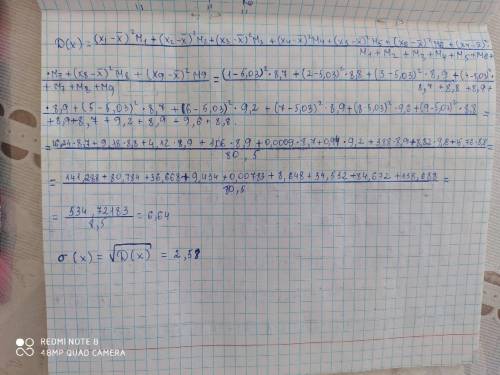 D(x) = (x₁-x̄)²M₁ + (x₂-x̄)²M₂ + (x₃-x̄)²M₃ + (x₄-x̄)²M₄ + (x₅-x̄)²M₅ + (x₆-x̄)²M₆ + (x₇-x̄)²·
M₁ + M₂ + M₃ + M₄ + M₅ + M₆ +
·M₇ + (x₈-x̄)²M₈ + (x₉-x̄)²M₉ = (1-5,03)²·8,7 + (2-5,03)²·8,8 + (3-5,03)²·8,9 + (4-5,03)²·
+ M₇ + M₈ + M₉
8,7 + 8,8 + 8,9 +
·8,9 + (5-5,03)²·8,7 + (6-5,03)²·9,2 + (7-5,03)²·8,9 + (8-5,03)²·9,6 + (9-5,03)²·8,8
+ 8,9 + 8,7 + 9,2 + 8,9 + 9,6 + 8,8.
= 16,24·8,7 + 9,18·8,8 + 4,12·8,9 + 1,06·8,9 + 0,0009·8,7 + 0,94·9,2 + 3,88·8,9 + 8,82·9,6 + 15,76·8,8 =
80,5
= 141,288 + 80,784 + 36,668 + 9,434 + 0,00783 + 8,648 + 34,532 + 84,672 + 138,688 =
80,5
= 534,72183 = 6,64
8,5
σ(x) = √D(x) = 2,58
REDMI NOTE 8
48MP QUAD CAMERA